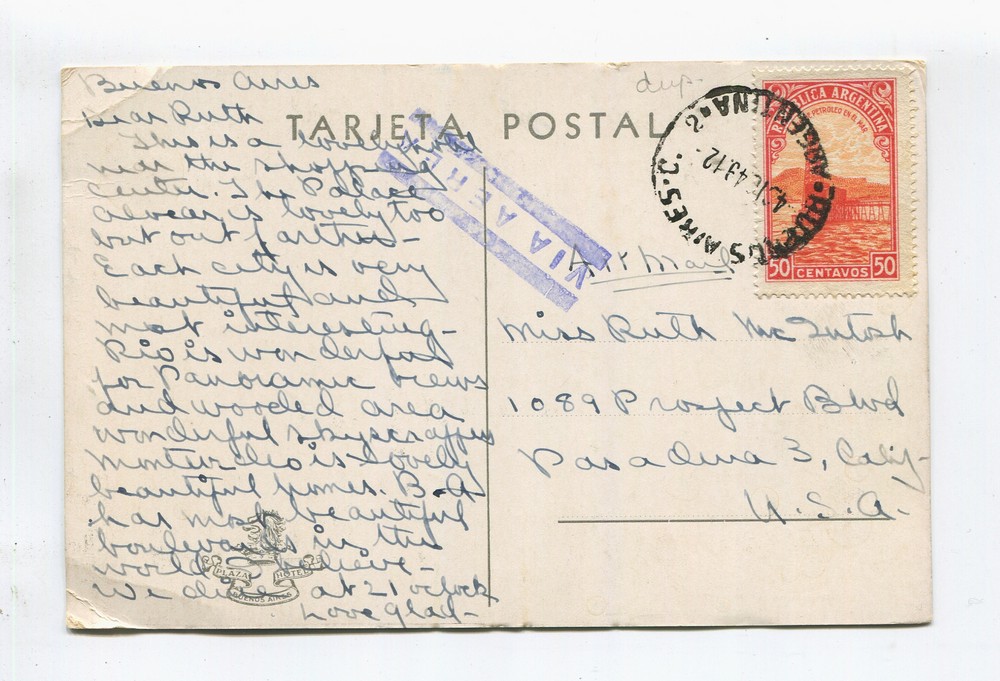 Buenos Aires
Dear Ruth
This is a lovely hotel
near the shopping
center. The Palace
alvear is lovely too
but out farther -
Each city is very
beautiful and
most interesting -
Rio is wonderful
for Panoramic views
and wooded area
wonderful skyscrappers
Montevideo is lovely
beautiful homes. B.A
has most beautiful
boulevards in the
world I believe -
We dine at 21 o'clock
Love Glad -
PLAZA HOTEL
BUENOS AIRES
TARJETA POSTAL
dup.
VIA AEREA
BUENOS AIRES.C.
ARGENTINA
2
REPUBLICA ARGENTINA
PETROLEO EN EL MAR
50 CENTAVOS 50
Air Mail
Miss Ruth McIntosh
1089 Prospect Blvd
Pasadena 3, Calif-
U.S.A.